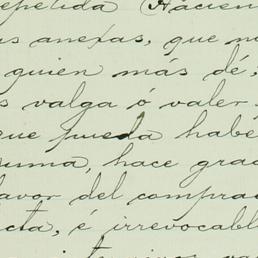 repetida Hacien
us anexas, que no
quien más dé,
s valga ó valer
que pueda habe
suma, hace grac
favor del comprad
cta, é irrevocabl